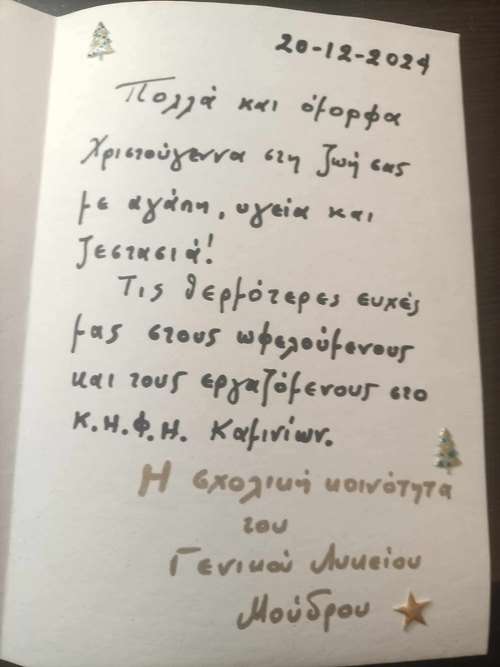 20-12-2024
Πολλά και όμορφα
Χριστούγεννα στη ζωή σας
με αγάπη, υγεία και
ζεστασιά!
Τις θερμότερες ευχές
μας στους ωφελούμενους
και τους εργαζόμενους στο
Κ.Η.Φ.Η. Καμινίων.
Η σχολική κοινότητα
του
Γενικού Λυκείου
Μούδρου